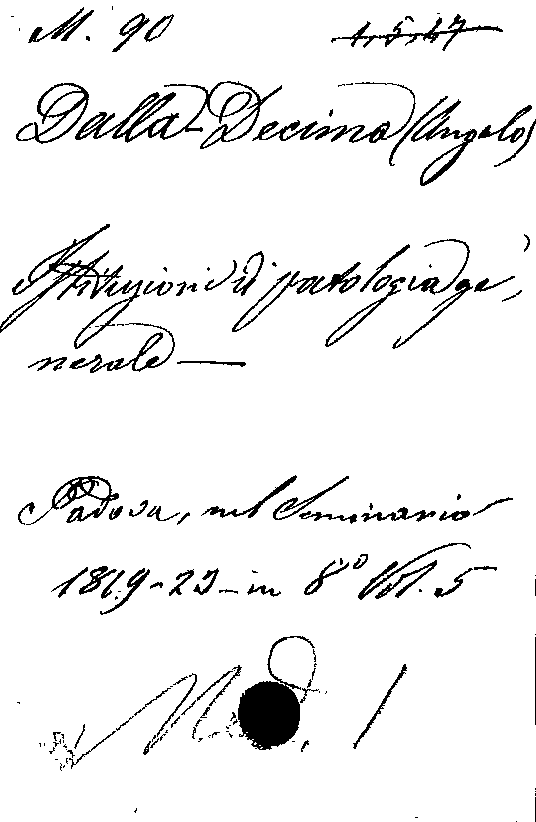 M. 90 1,5,27
Dalla-Decima (Angelo)
Istituzioni di patologia ge,
nerale —
Padova, nel Seminario
1819-23 - in 8° Vol. 5
Med. 1